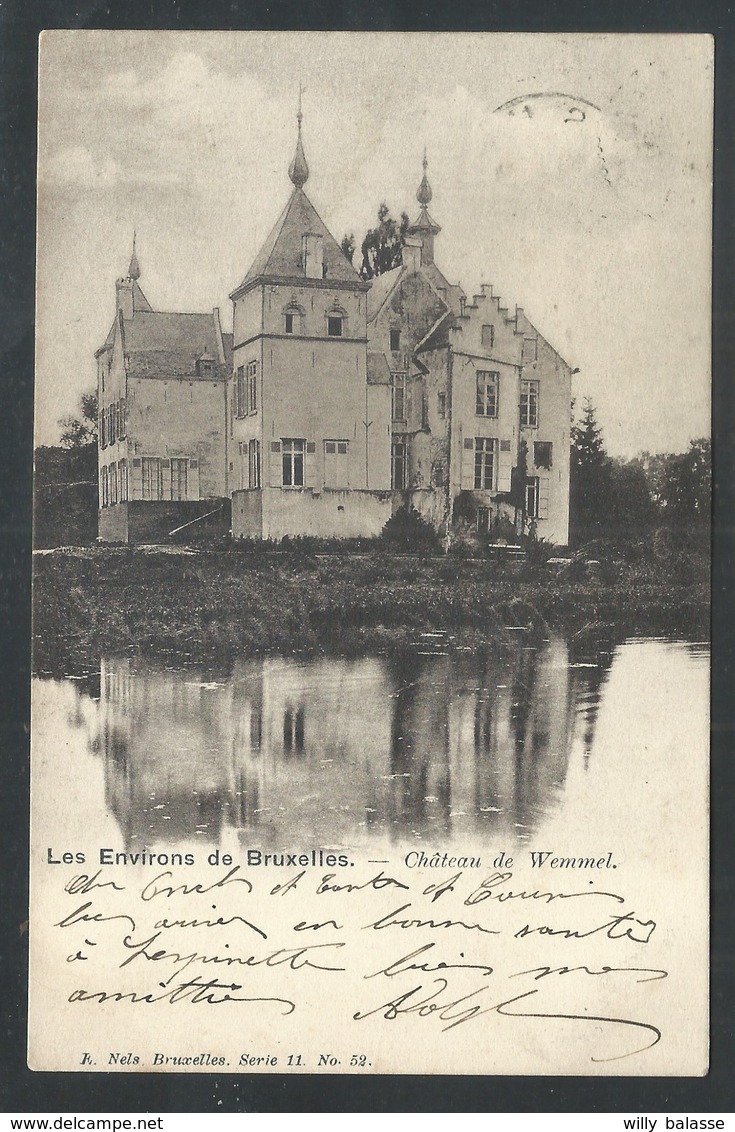 Les Environs de Bruxelles. — Château de Wemmel.
Oncle et Tante et Cousin
bien arrivé en bonne santé
à Lespinette bien mes
amittiés Adolph
E. Nels, Bruxelles. Serie 11. No. 52.
willy balasse